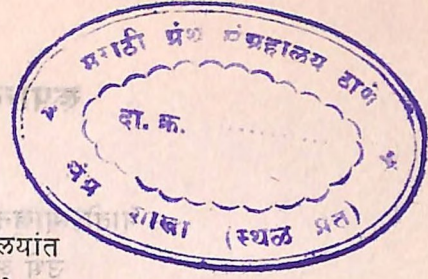 मराठी ग्रंथ संग्रहालय ठाणे
दा. क्र. ............
ग्रंथ शाखा (स्थळ प्रत)
लयांत